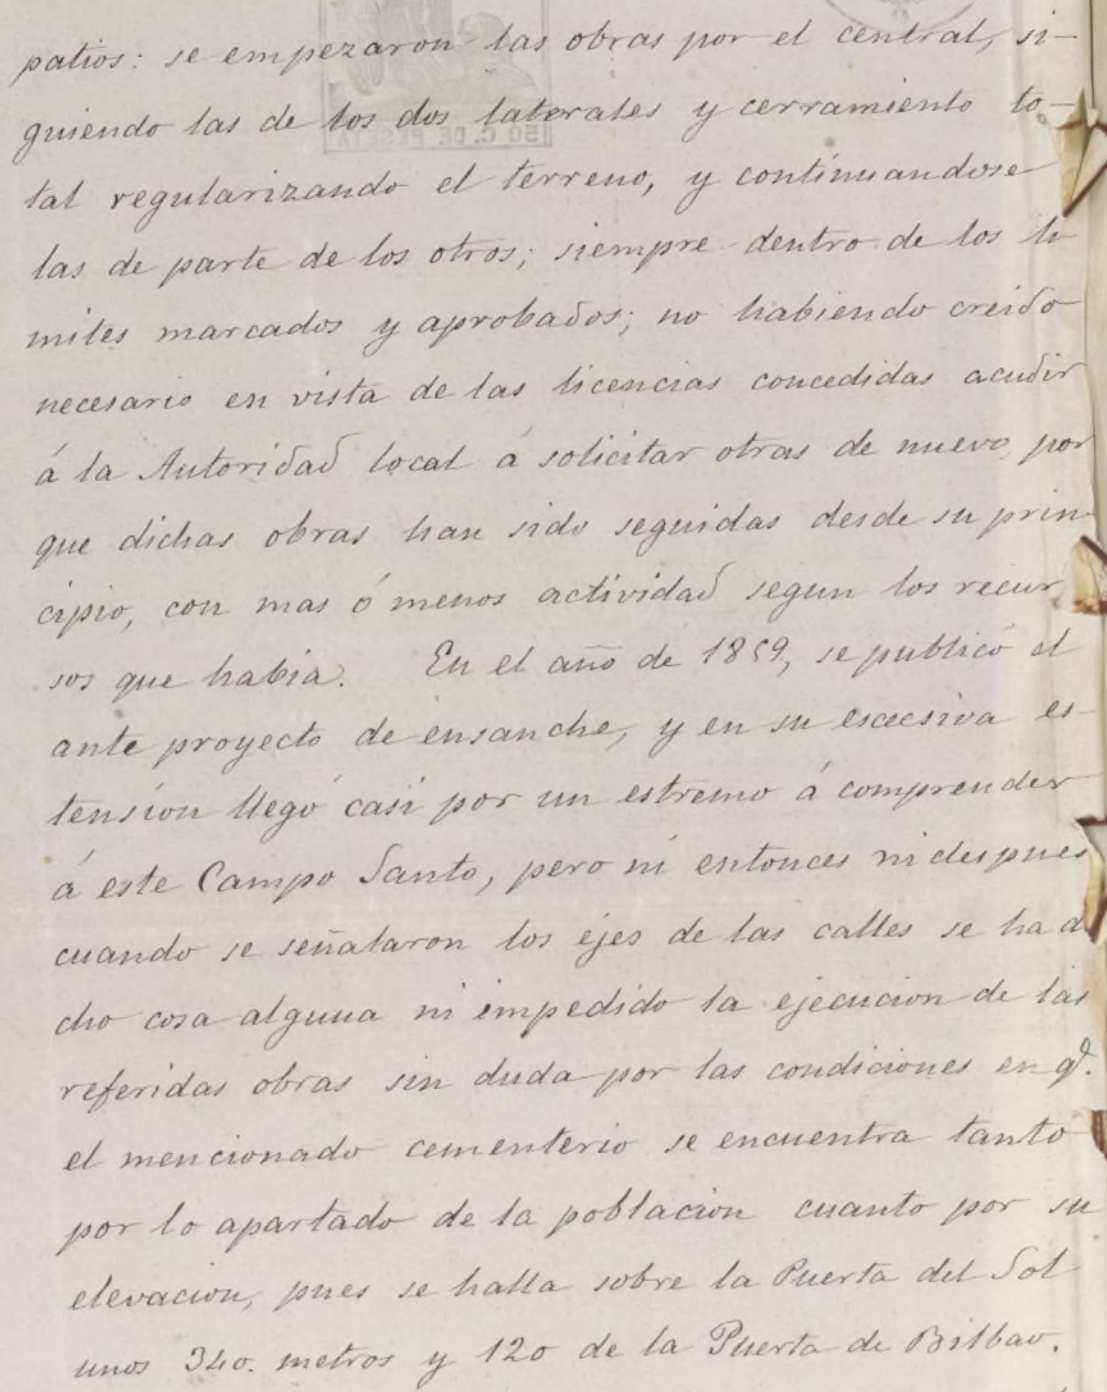 patios: se empezaron las obras por el central, si-
guiendo las de los dos laterales y cerramiento to-
tal regularizando el terreno, y continuandose
las de parte de los otros; siempre dentro de los li
mites marcados y aprobados; no habiendo creido
necesario en vista de las licencias concedidas acudir
á la Autoridad local á solicitar otras de nuevo, por
que dichas obras han sido seguidas desde su prin
cipio, con mas ó menos actividad segun los recur
sos que habia. En el año de 1859, se publicó el
ante proyecto de ensanche, y en su escesiva es-
tension llegó casi por un estremo á comprender
á este Campo Santo, pero ni entonces ni despues
cuando se señalaron los ejes de las calles se ha di
cho cosa alguna ni impedido la ejecucion de las
referidas obras sin duda por las condiciones en q.e
el mencionado cementerio se encuentra tanto
por lo apartado de la poblacion cuanto por su
elevacion, pues se halla sobre la Puerta del Sol
unos 340. metros y 120 de la Puerta de Bilbao.